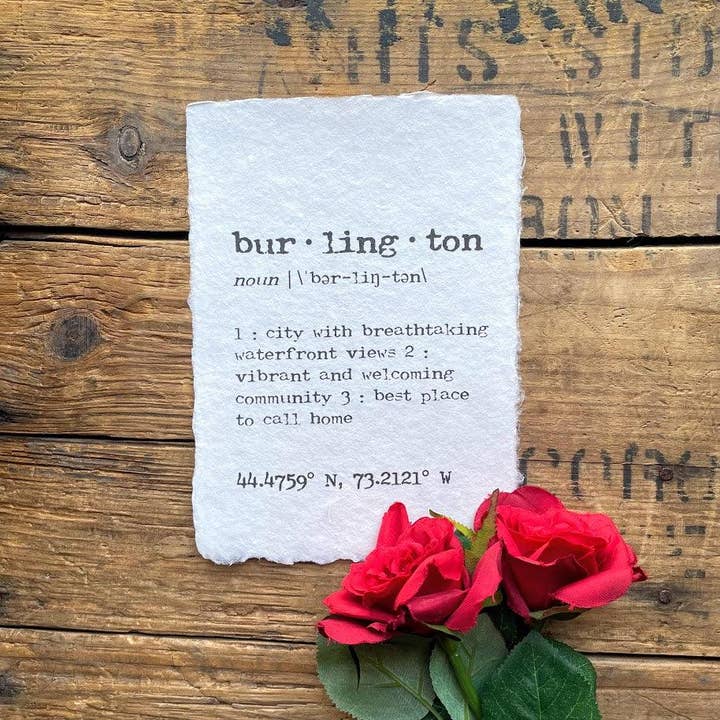 WIT
bur · ling · ton
noun | \ˈbər-liŋ-tən\
1 : city with breathtaking
waterfront views 2 :
vibrant and welcoming
community 3 : best place
to call home
44.4759° N, 73.2121° W